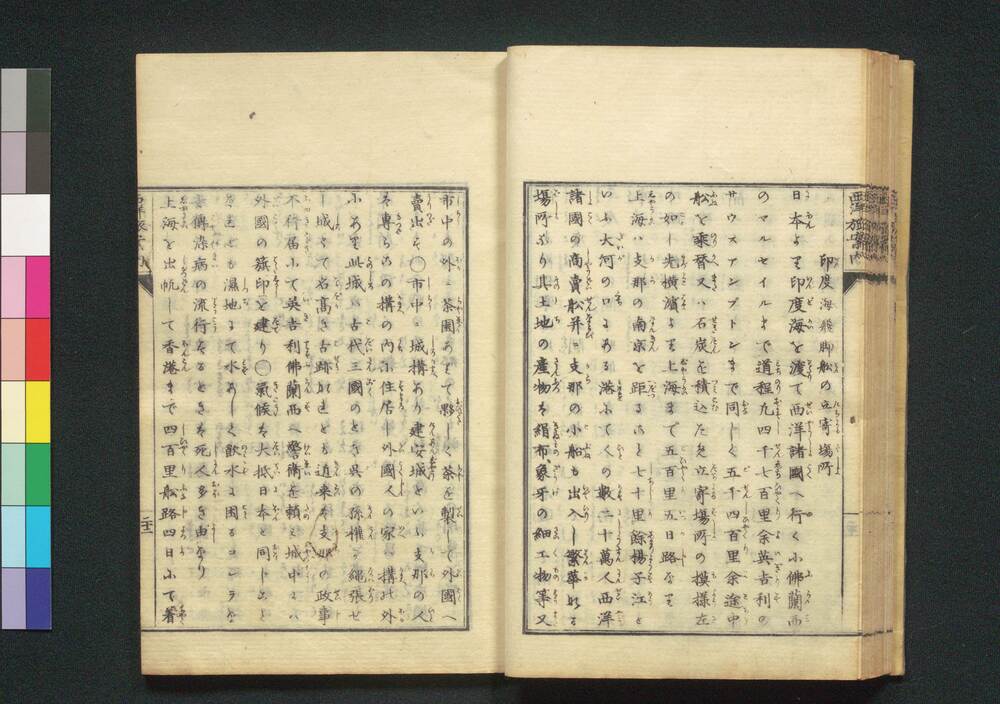 印度海飛脚船の立寄場所
日本より印度海を渡て西洋諸國へ行くに佛蘭西
のマルセイルまで道程九四千七百里余英吉利の
サウスアンプトンまで同しく五千四百里余途中
船を乗替又ハ石炭を積込たる立寄場所の模様左
の如し先横濱より上海まで五百里五日路なり
上海ハ支那の南京を距ること七十里餘揚子江と
いふ大河の口にある港にて人の數二十萬人西洋
諸國の商賣船并ニ支那の小船も出入し繁華なる
場所なり其土地の産物は絹布象牙の細工物等又
市中の外ニ茶園ありて夥しく茶を製して外國へ
賣出す〇市中ニ城構あり建安城といふ支那の人
は専ら此構の内に住居し外國人の家ハ構の外
にあり此城ハ古代三國のとき呉の孫權が繩張せ
し城にて名高き古跡なれとも近来は支那の政事
不行届にて英吉利佛蘭西へ警衛を頼ミ城中にハ
外國の籏印を建り〇氣候は大抵日本と同しこと
なれとも濕地にて水あしく飲水に困るコレラな
と傳染病の流行するときは死人多き由なり
上海を出帆して香港まで四百里船路四日にて着
西洋旅案内
二十二